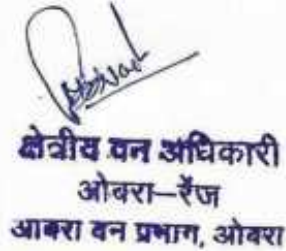 क्षेत्रीय वन अधिकारी
ओबरा–रेंज
आबरा वन प्रभाग, ओबरा